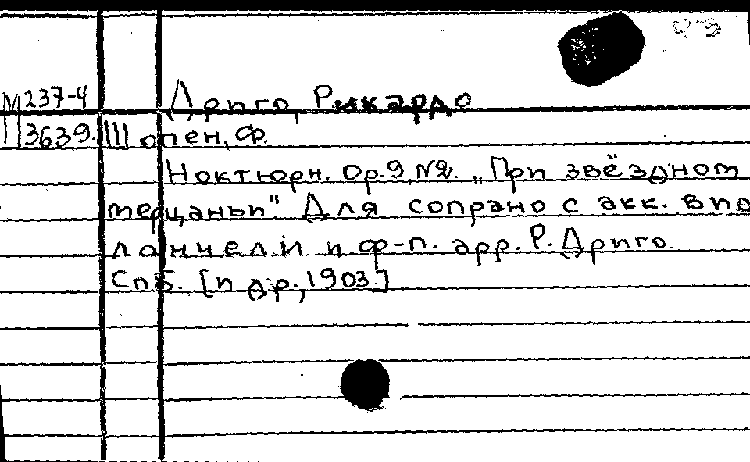 М 237-4 Дриго, Рикардо
П 3639. Шопен, Ф.
Ноктюрн. Op.9, №2. „При звёздном
мерцаньи". Для сопрано с акк. вио
лончели и ф-п. арр. Р. Дриго.
Спб. [и др., 1903.]